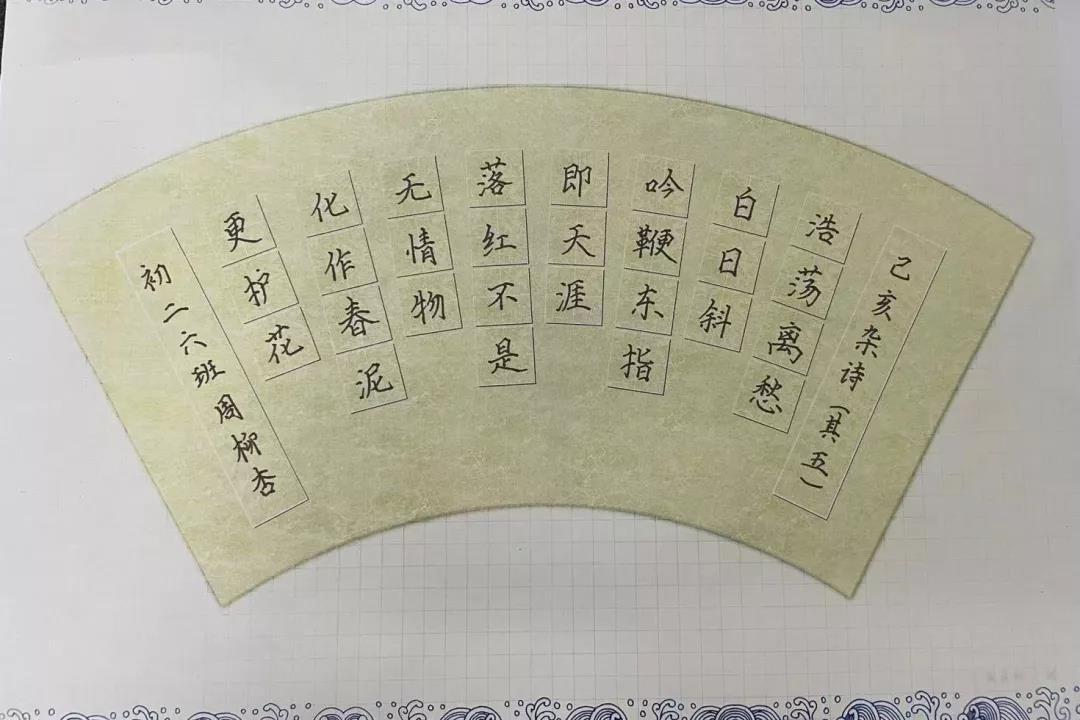 己亥杂诗(其五)
浩荡离愁
白日斜
吟鞭东指
即天涯
落红不是
无情物
化作春泥
更护花
初二六班周柳杏